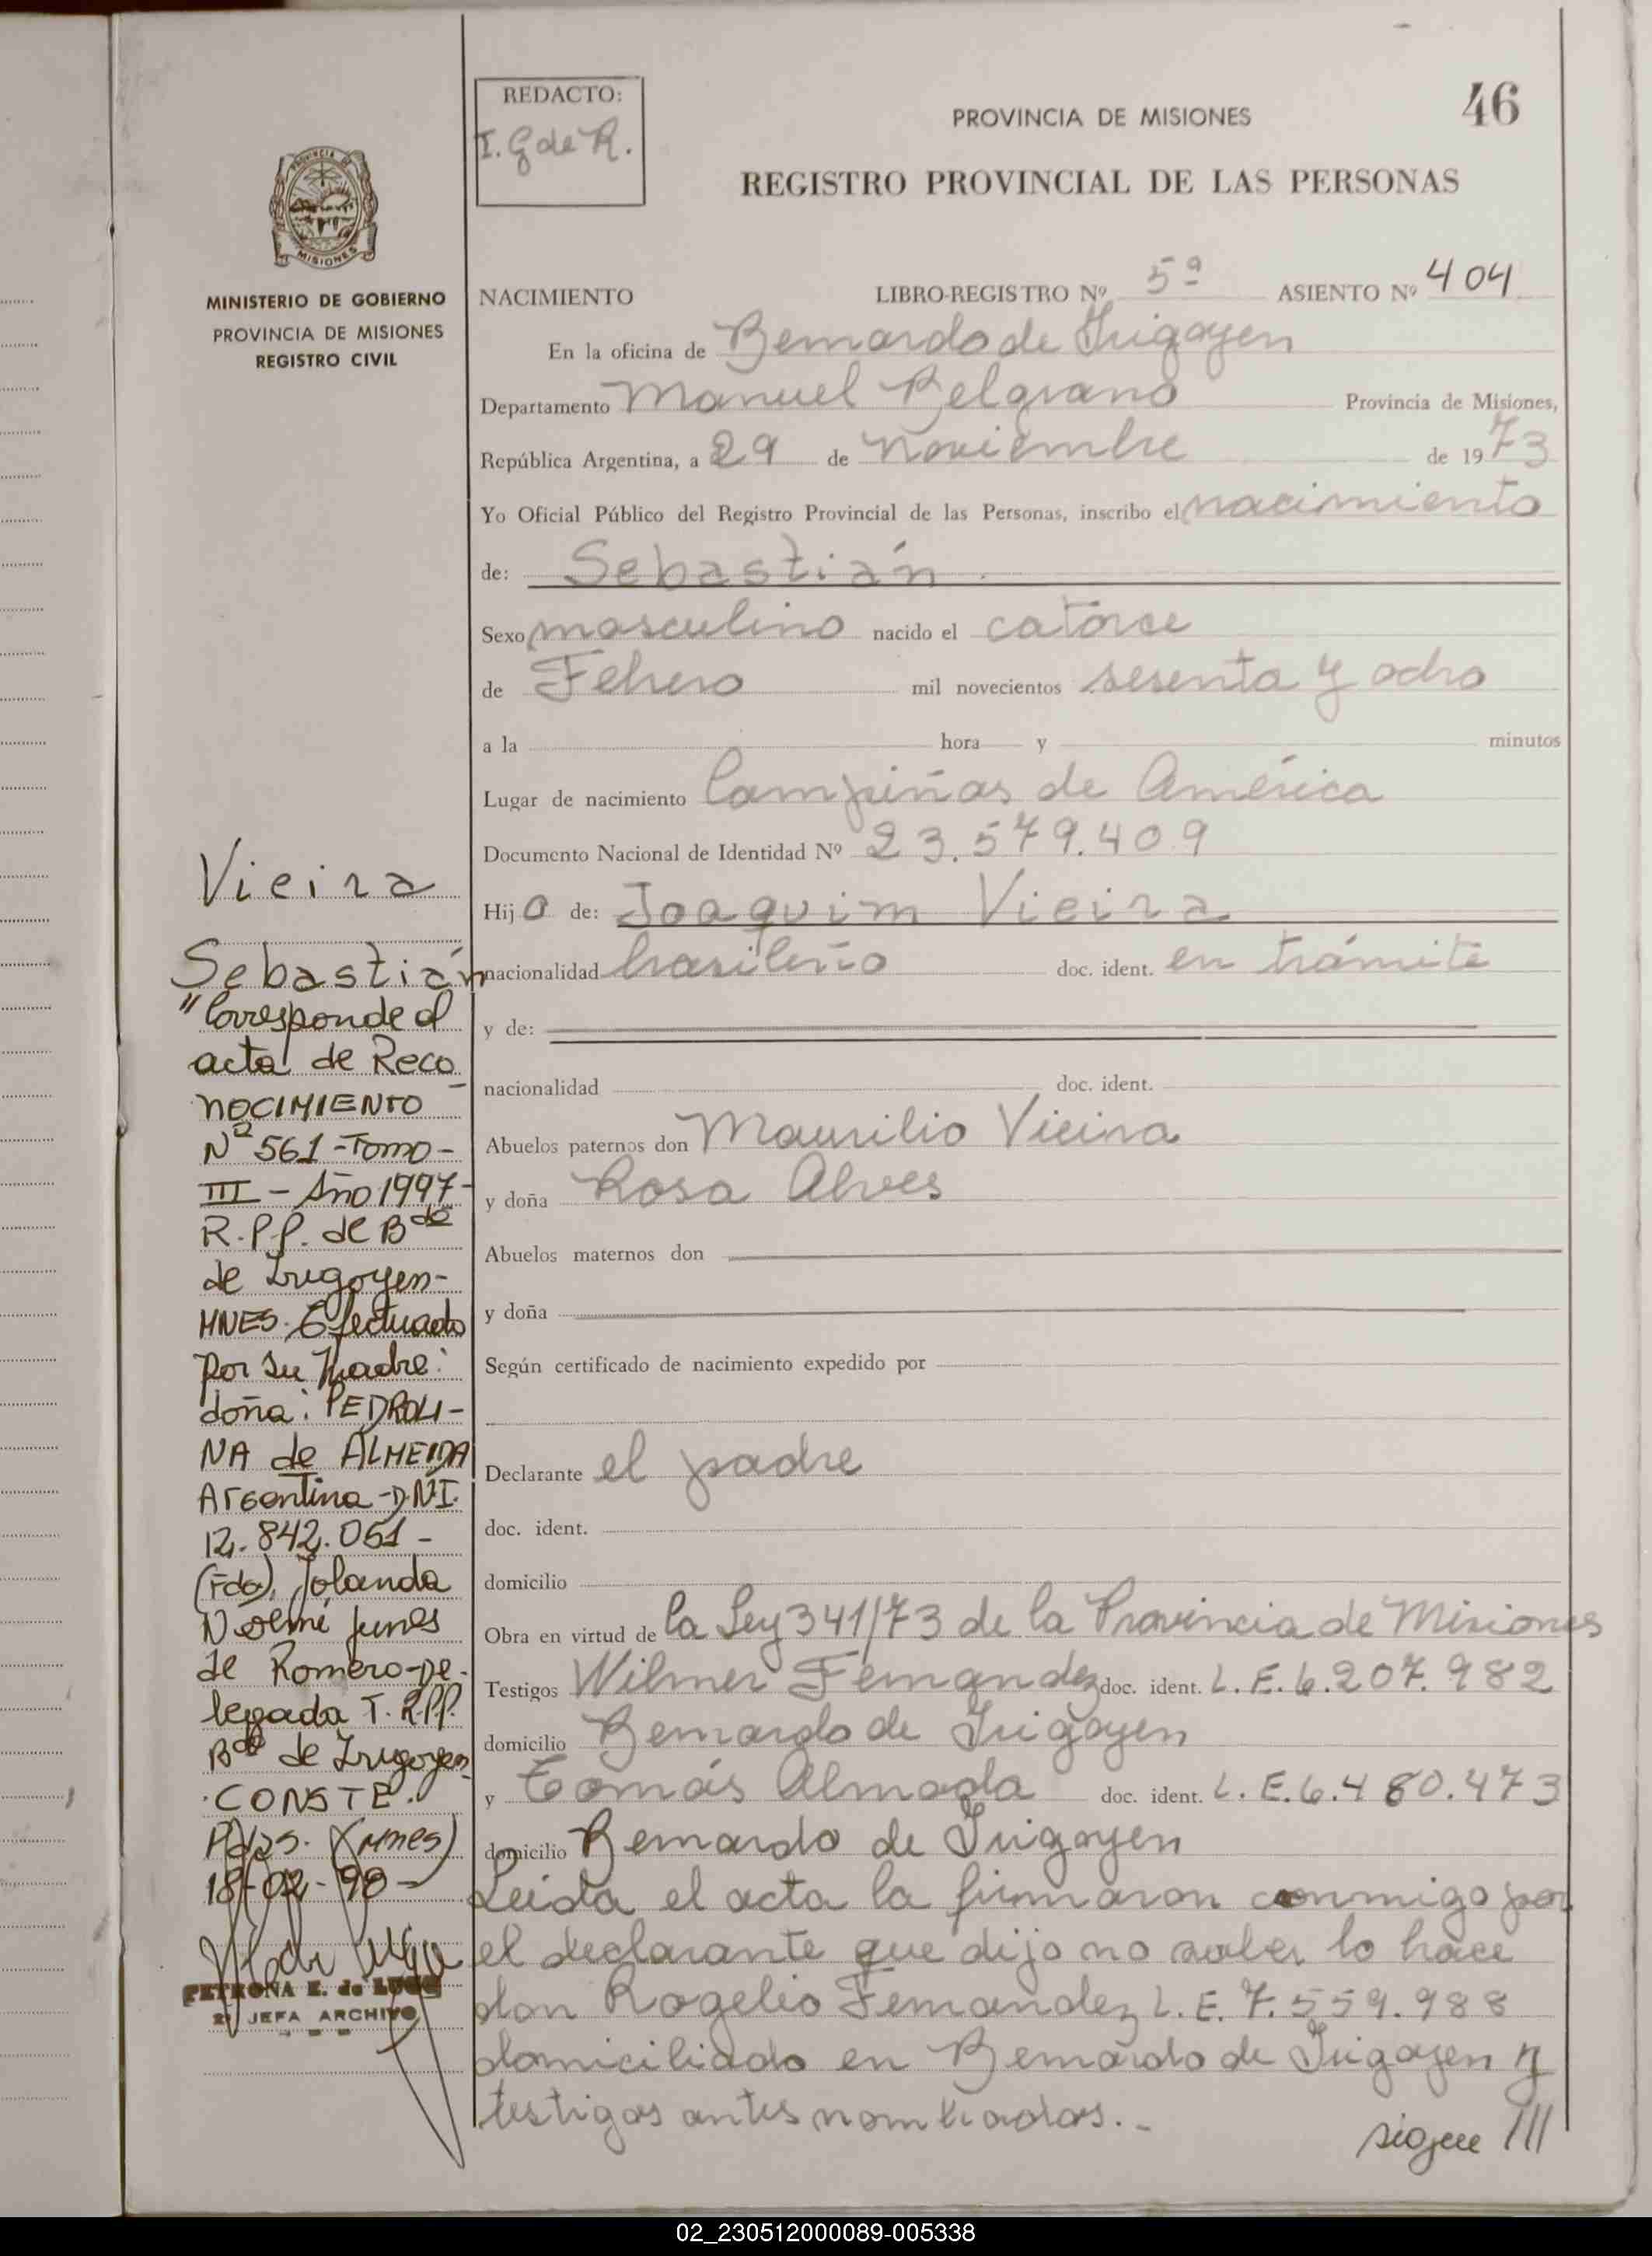 46
REDACTO:
I. G de R.
PROVINCIA DE MISIONES
REGISTRO PROVINCIAL DE LAS PERSONAS
PROVINCIA DE
MISIONES
MINISTERIO DE GOBIERNO
PROVINCIA DE MISIONES
REGISTRO CIVIL
NACIMIENTO LIBRO-REGISTRO Nº 5º ASIENTO Nº 404
En la oficina de Bernardo de Irigoyen
Departamento Manuel Belgrano Provincia de Misiones,
República Argentina, a 29 de noviembre de 1973
Yo Oficial Público del Registro Provincial de las Personas, inscribo el nacimiento
de: Sebastián
Sexo masculino nacido el catorce
de Febrero mil novecientos sesenta y ocho
a la hora y minutos
Lugar de nacimiento Campiñas de América
Documento Nacional de Identidad Nº 23.579.409
Hijo de: Joaquim Vieira
nacionalidad brasileño doc. ident. en trámite
y de:
nacionalidad doc. ident.
Abuelos paternos don Maurilio Vieira
y doña Rosa Alves
Abuelos maternos don
y doña
Según certificado de nacimiento expedido por
Declarante el padre
doc. ident.
domicilio
Obra en virtud de la Ley 341/73 de la Provincia de Misiones
Testigos Wilmer Fernandez doc. ident. L.E.6.207.982
domicilio Bernardo de Irigoyen
y Tomás Almada doc. ident. L.E.6.480.473
domicilio Bernardo de Irigoyen
Leida el acta la firmaron conmigo por
el declarante que dijo no saber lo hace
don Rogelio Fernandez L.E. 7.559.988
domiciliado en Bernardo de Irigoyen y
testigos antes nombrados.-
sigue ///
Vieira
Sebastián
"Corresponde al
acta de Reco
NOCIMIENTO
Nº 561 -Tomo-
III - Año 1997-
R.P.P. de Bdo
de Irigoyen-
MNES. Efectuado
por su Madre:
doña: PEDROLI-
NA de ALMEIDA
Argentina -D.N.I.
12.842.051-
(Fdo), Iolanda
Noemí Junes
de Romero-De-
legada T. R.P.P.
Bdo de Irigoyen
.CONSTE.
Pdas. (Mnes)
18-02-98-
PETRONA E. de LUGO
2º JEFA ARCHIVO
02_230512000089-005338